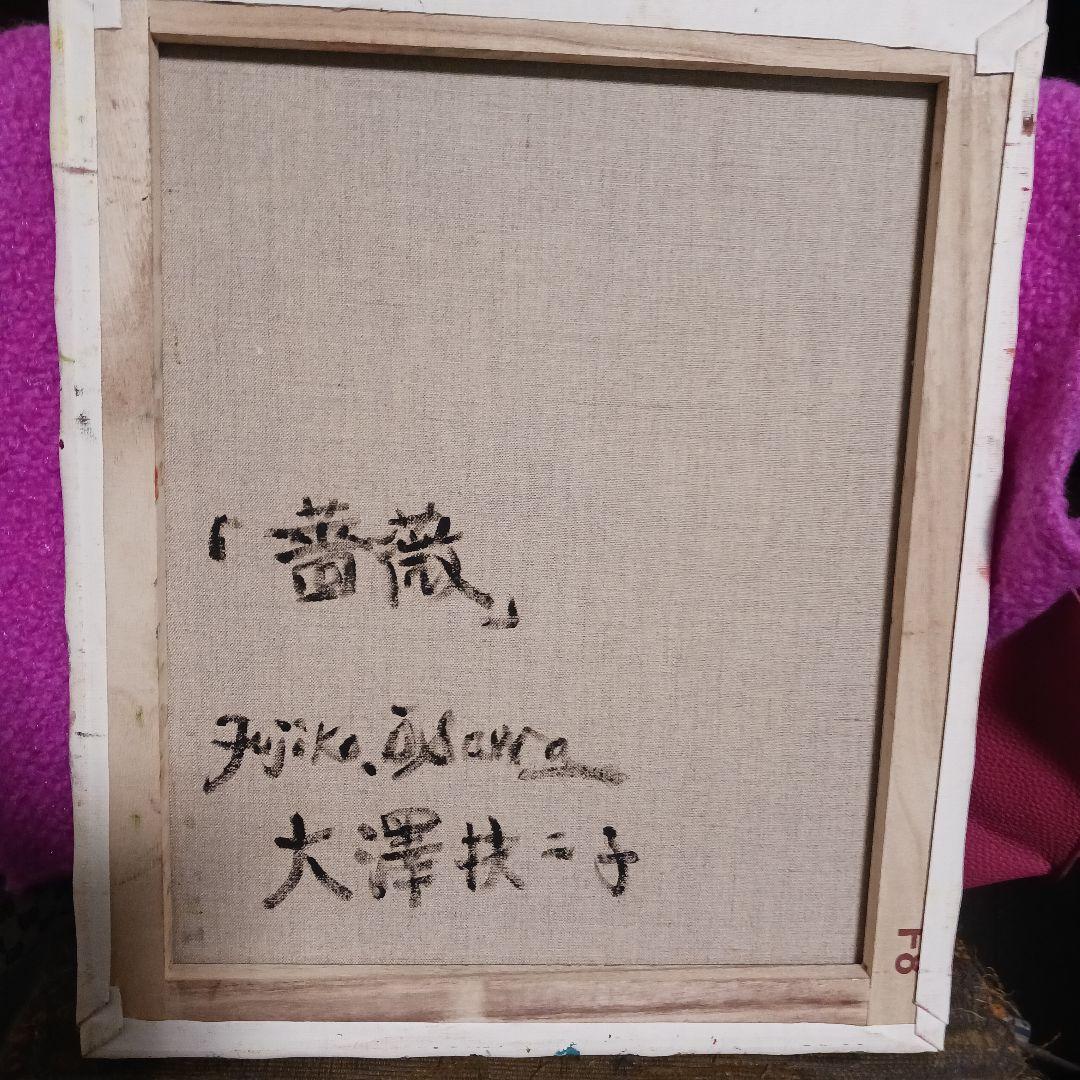 「薔薇」
Fujiko.Ōsawa
大澤扶二子
F8